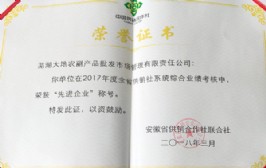 荣誉证书
芜湖大地农副产品批发市场管理有限公司:
你单位在2017年度全省供销社系统综合业绩考核中,
荣获“先进企业”称号。
特发此证,以资鼓励。
安徽省供销合作社联合社
二〇一八年三月